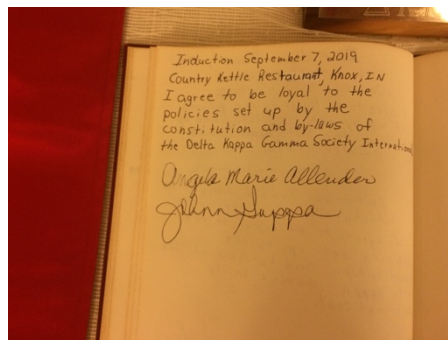 Induction September 7, 2019
Country Kettle Restaurant, Knox, IN
I agree to be loyal to the
policies set up by the
constitution and by-laws of
the Delta Kappa Gamma Society International
Angela Marie Allender
JoAnn Suppa